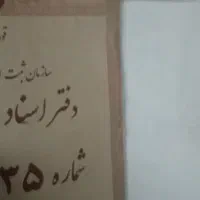 سازمان ثبت ا
دفتر اسناد
شماره ۳۵